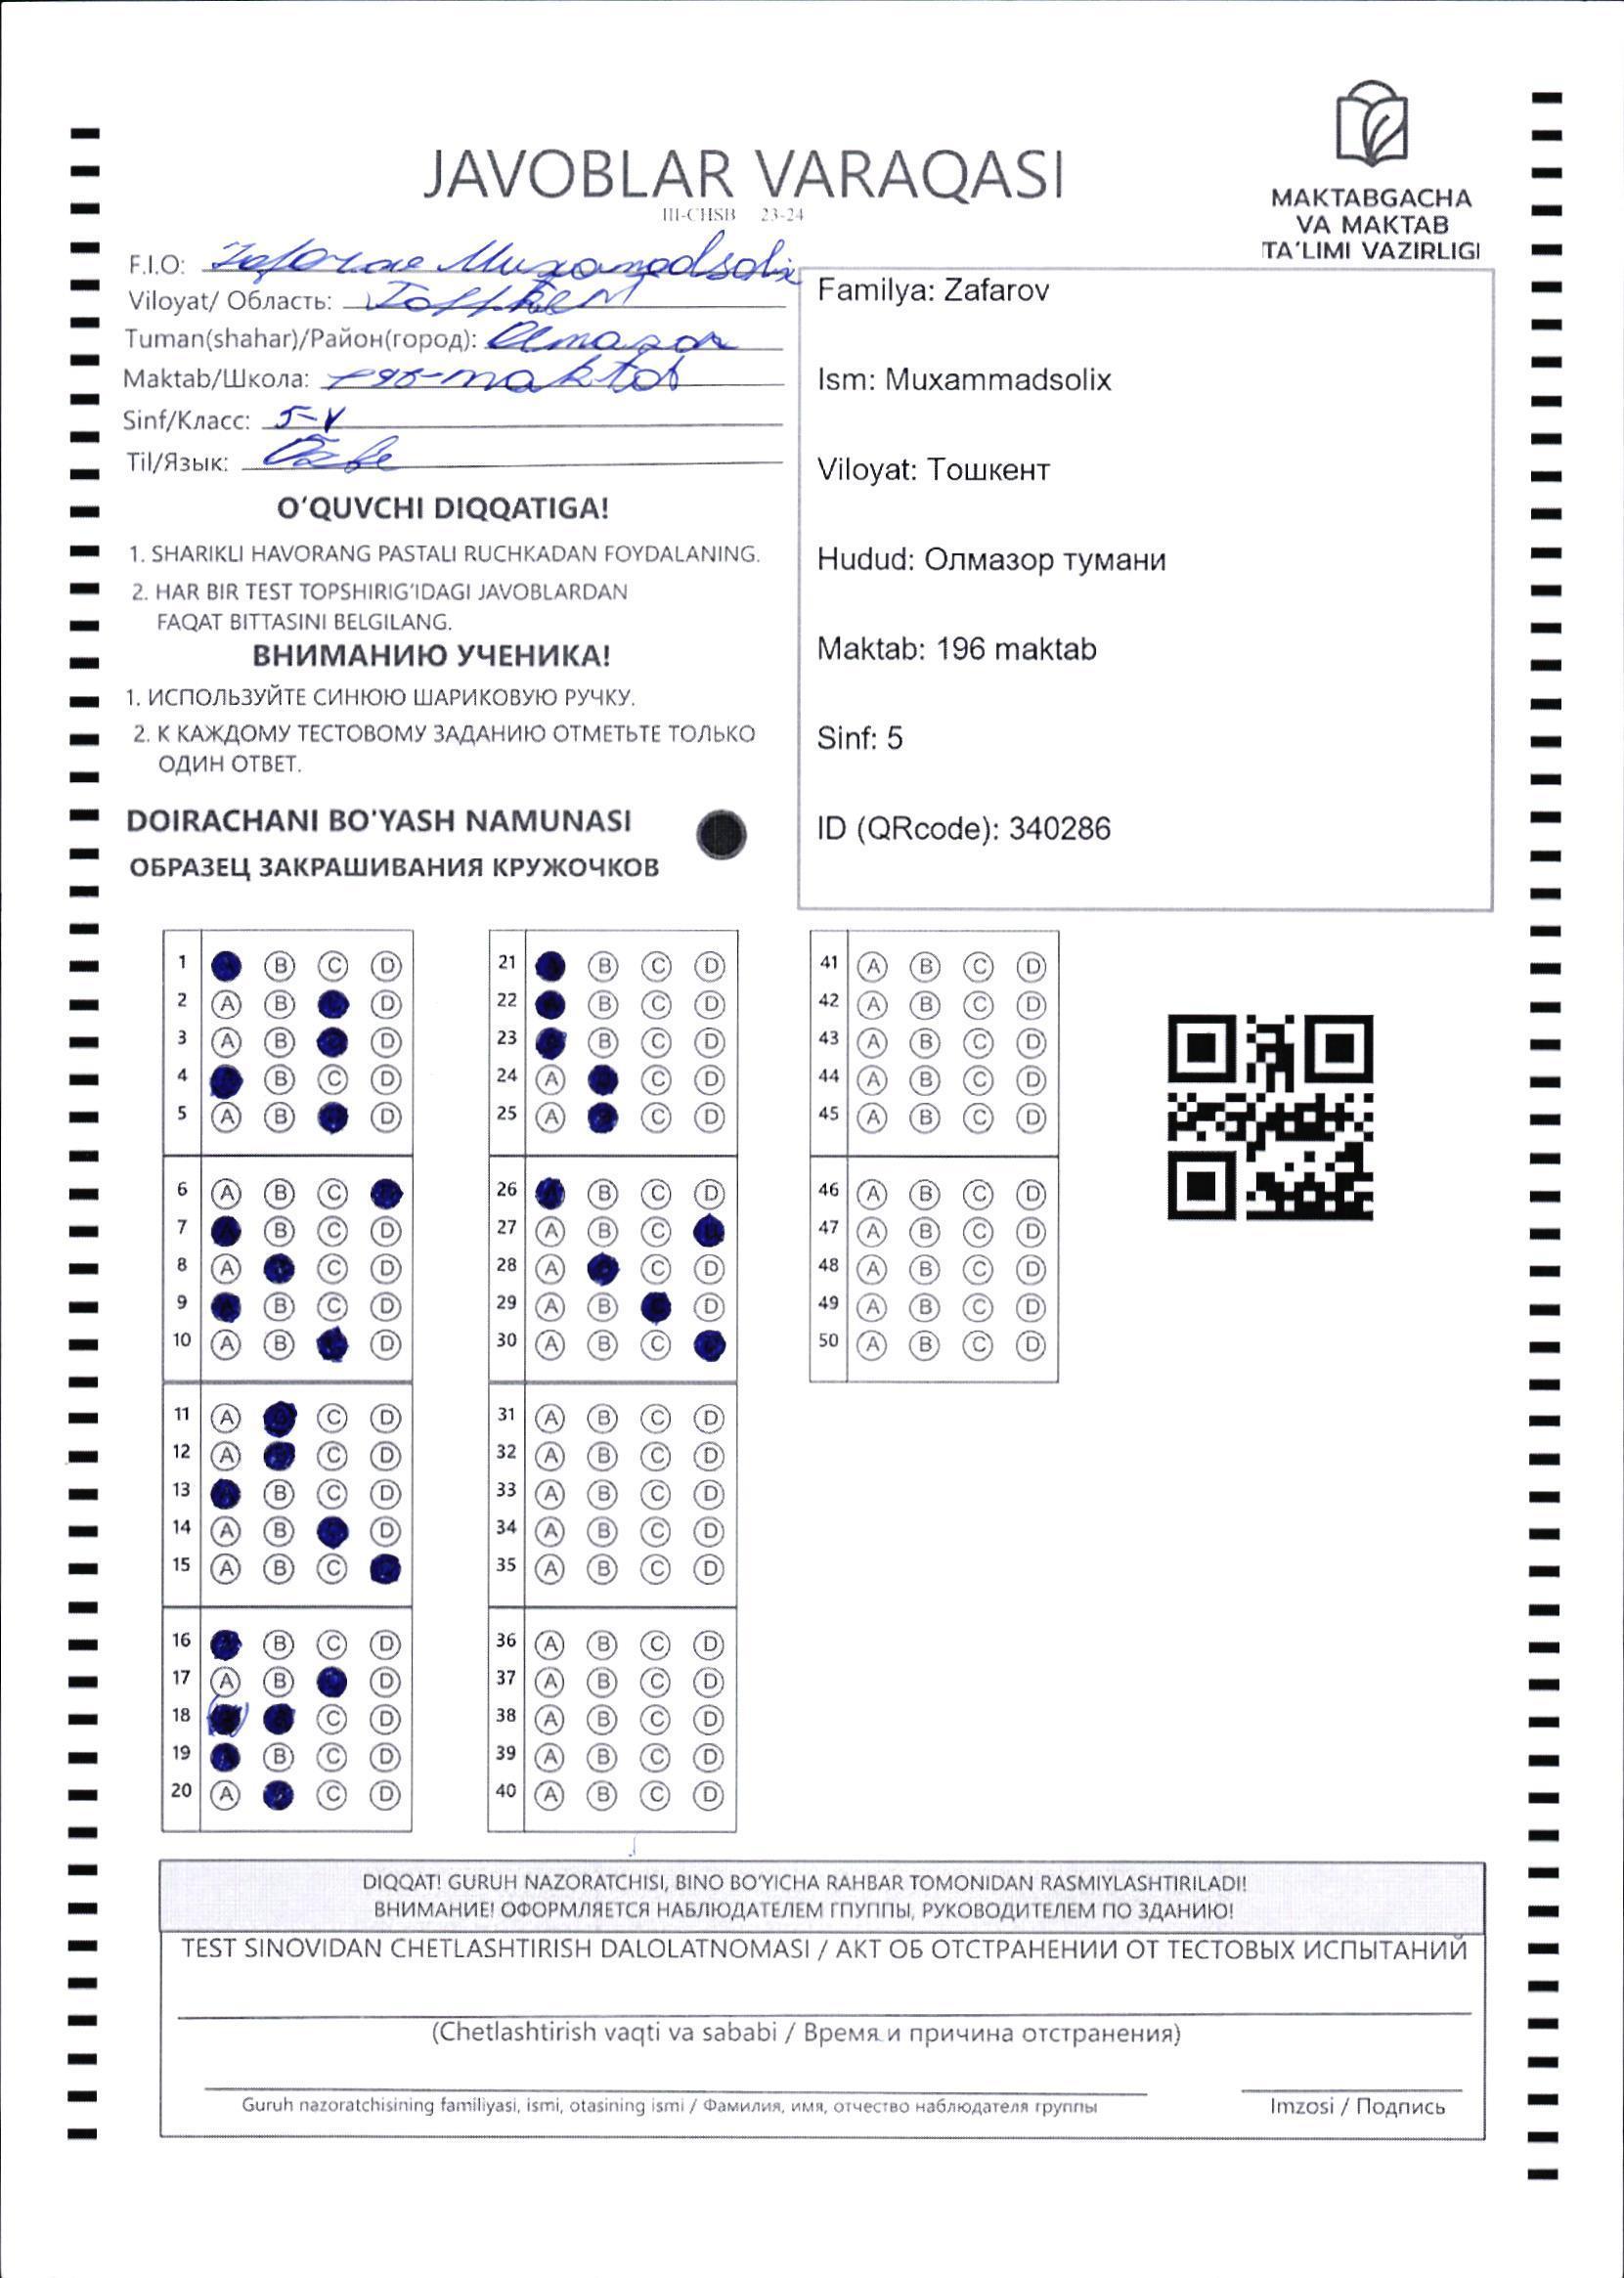 JAVOBLAR VARAQASI
III-CHSB 23-24
MAKTABGACHA
VA MAKTAB
TA'LIMI VAZIRLIGI
F.I.O: Zafarov Muxamadsolix
Viloyat/ Область: Toshkent
Tuman(shahar)/Район(город): Olmazor
Maktab/Школа: 196-maktab
Sinf/Класс: 5-V
Til/Язык:
Familya: Zafarov
Ism: Muxammadsolix
Viloyat: Тошкент
Hudud: Олмазор тумани
Maktab: 196 maktab
Sinf: 5
ID (QRcode): 340286
O'QUVCHI DIQQATIGA!
1. SHARIKLI HAVORANG PASTALI RUCHKADAN FOYDALANING.
2. HAR BIR TEST TOPSHIRIG'IDAGI JAVOBLARDAN
FAQAT BITTASINI BELGILANG.
ВНИМАНИЮ УЧЕНИКА!
1. ИСПОЛЬЗУЙТЕ СИНЮЮ ШАРИКОВУЮ РУЧКУ.
2. К КАЖДОМУ ТЕСТОВОМУ ЗАДАНИЮ ОТМЕТЬТЕ ТОЛЬКО
ОДИН ОТВЕТ.
DOIRACHANI BO'YASH NAMUNASI
ОБРАЗЕЦ ЗАКРАШИВАНИЯ КРУЖОЧКОВ
1 B C D
2 A B D
3 A B D
4 B C D
5 A B D
6 A B C
7 A B C D
8 A C D
9 A B C D
10 A B D
11 A C D
12 A C D
13 B C D
14 A B D
15 A B C
16 B C D
17 A B D
18 C D
19 B C D
20 A C D
21 B C D
22 B C D
23 B C D
24 A C D
25 A C D
26 A B C D
27 A B C
28 A C D
29 A B C D
30 A B C
31 A B C D
32 A B C D
33 A B C D
34 A B C D
35 A B C D
36 A B C D
37 A B C D
38 A B C D
39 A B C D
40 A B C D
41 A B C D
42 A B C D
43 A B C D
44 A B C D
45 A B C D
46 A B C D
47 A B C D
48 A B C D
49 A B C D
50 A B C D
DIQQAT! GURUH NAZORATCHISI, BINO BO'YICHA RAHBAR TOMONIDAN RASMIYLASHTIRILADI!
ВНИМАНИЕ! ОФОРМЛЯЕТСЯ НАБЛЮДАТЕЛЕМ ГПУППЫ, РУКОВОДИТЕЛЕМ ПО ЗДАНИЮ!
TEST SINOVIDAN CHETLASHTIRISH DALOLATNOMASI / АКТ ОБ ОТСТРАНЕНИИ ОТ ТЕСТОВЫХ ИСПЫТАНИЙ
(Chetlashtirish vaqti va sababi / Время и причина отстранения)
Guruh nazoratchisining familiyasi, ismi, otasining ismi / Фамилия, имя, отчество наблюдателя группы
Imzosi / Подпись